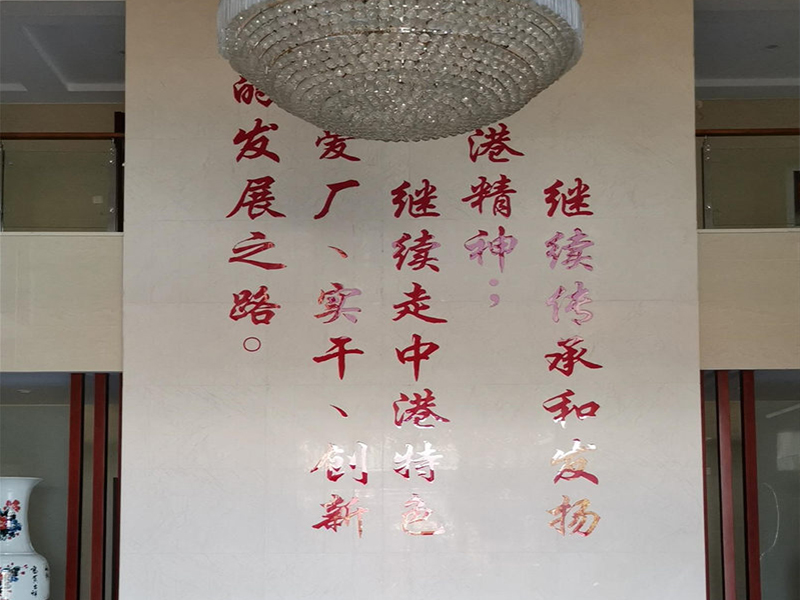 继续传承和发扬
港精神；
继续走中港特色
爱厂、实干、创新
的发展之路。